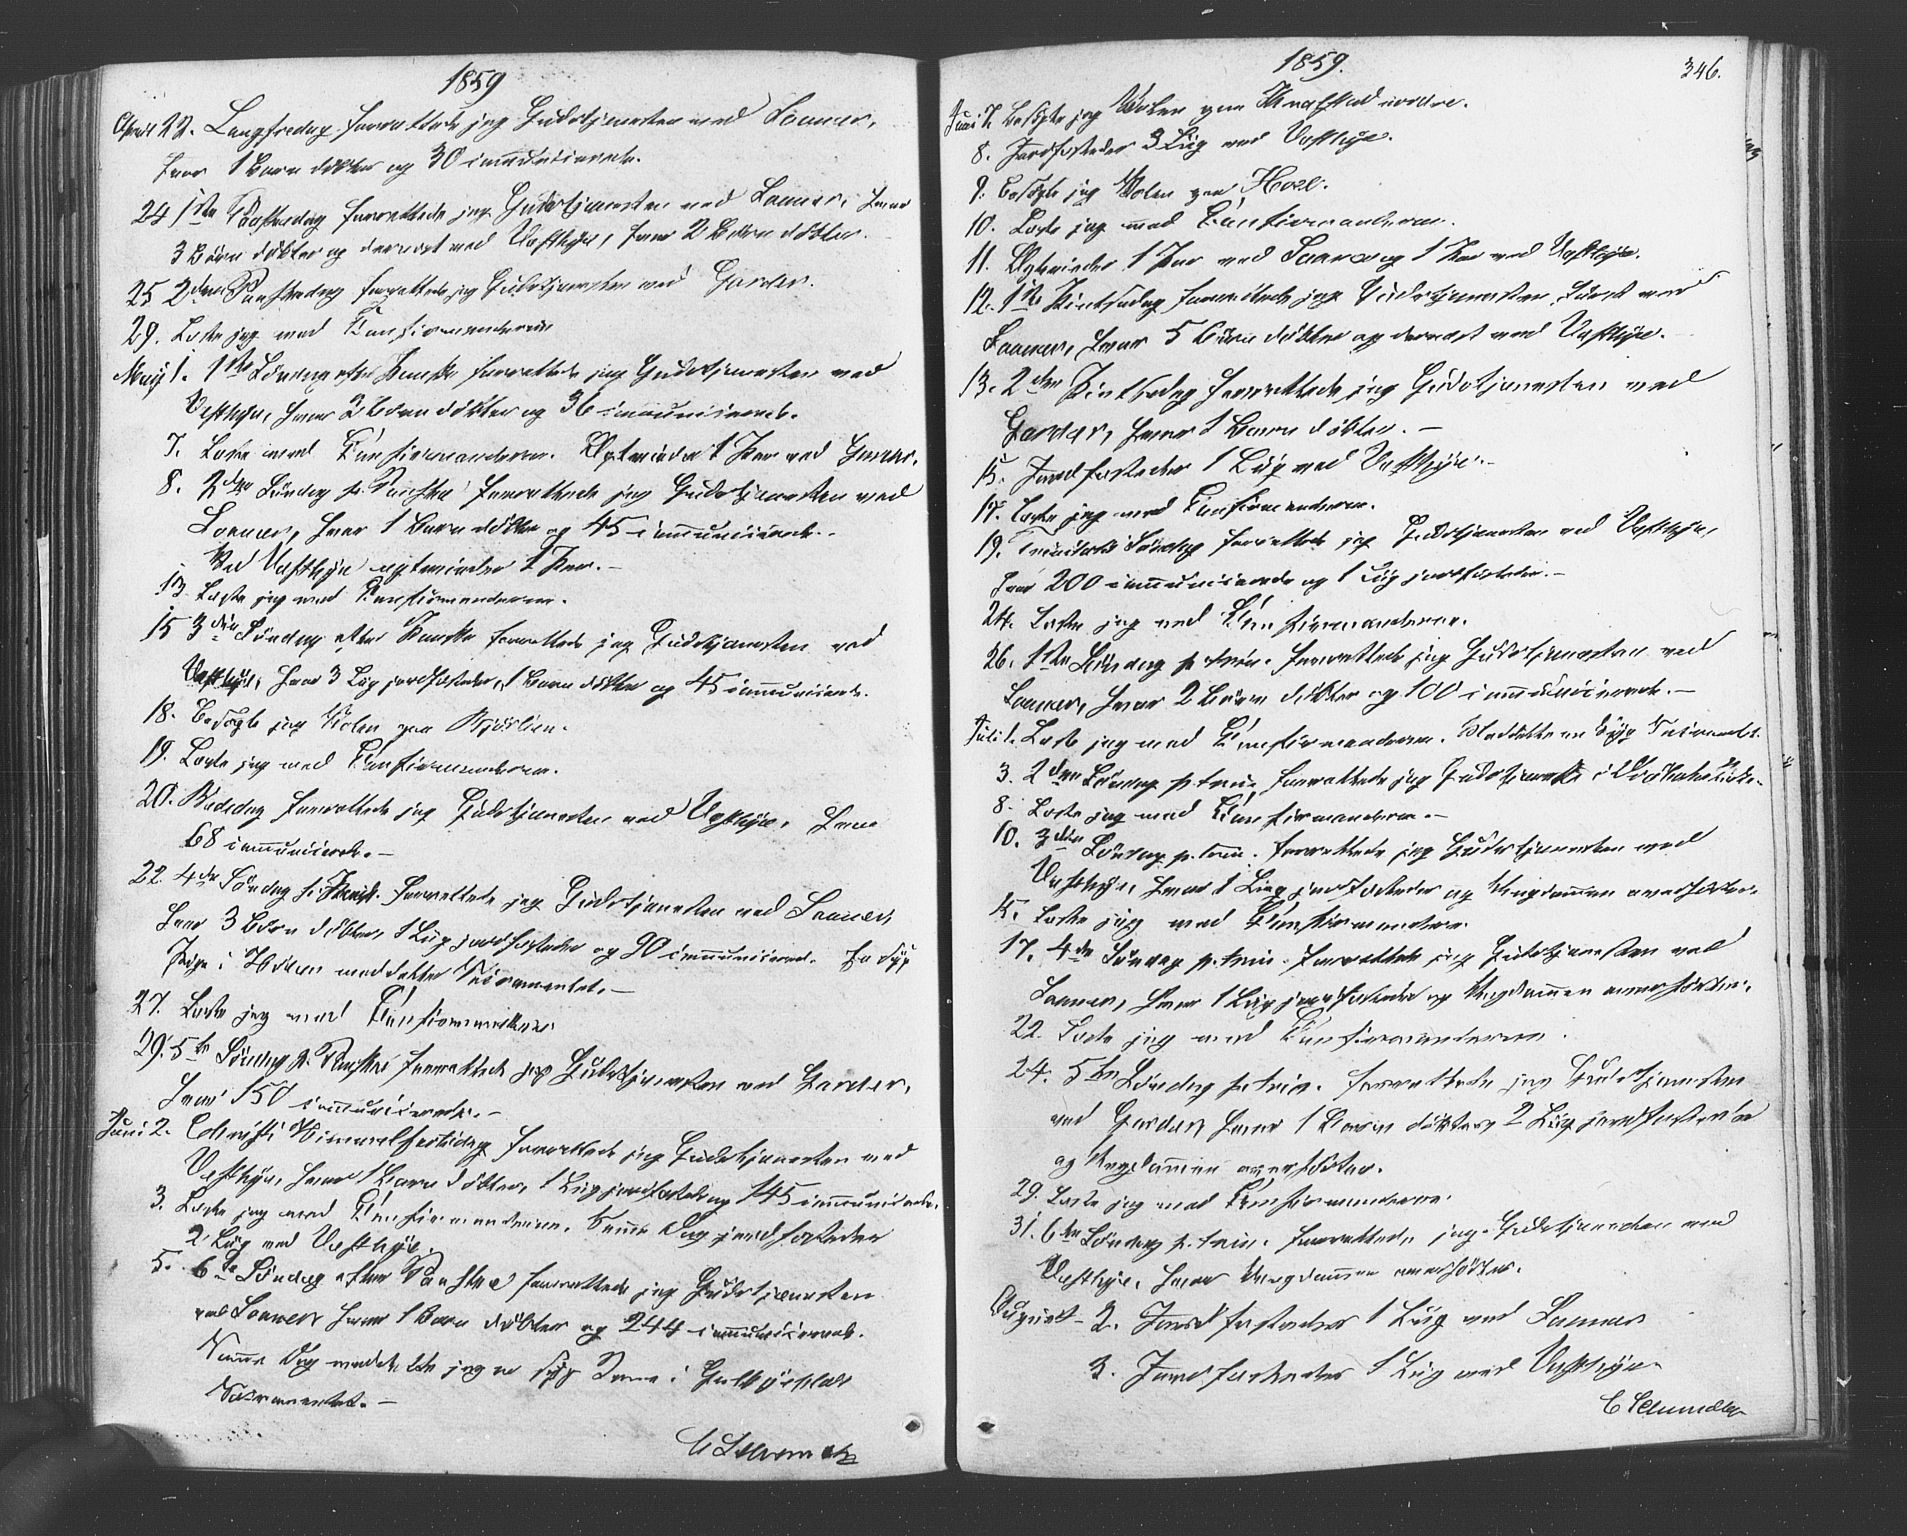 1859
April 22. Langfredag forrettede jeg Gudstjenesten ved Sonner,
hvor 1 Barn døbtes og 30 communicerede.
24 1ste Paaskedag forrettede jeg Gudstjenesten ved Sonner, hvor
3 Børn døbtes og dernæst ved Vestbye, hvor 2 Børn døbtes.
25 2den Paaskedag forrettede jeg Gudstjenesten ved Garder.
29. Læste jeg med Confirmanderne
May 1. 1ste Søndag efter Paaske forrettede jeg Gudstjenesten ved
Vestbye, hvor 2 Børn døbtes og 36 communicerede.
7. Læste med Confirmanderne. Egteviede 1 Par ved
8. 2den Søndag p. Paaske forrettede jeg Gudstjenesten ved
Sonner, hvor 1 Barn døbtes og 45 communicerede.
Ved Vestbye egteviedes 1 Par.-
13 Læste jeg med Confirmanderne.
15 3die Søndag efter Paaske forrettede jeg Gudstjenesten ved
Vestbye, hvor 3 Liig jordfæstedes, 1 Barn døbtes og 45 communicerede.
18. Besøgte jeg Skolen paa
19. Læste jeg med Confirmanderne.
20. Bededag forrettede jeg Gudstjenesten ved Vestbye, hvor
68 communicerede.-
22. 4de Søndag p. Paaske forrettede jeg Gudstjenesten ved Sonner,
hvor 3 Børn døbtes, 1 Liig jordfæstedes og 90 communicerede. En syg
i meddeltes Sacramentet.-
27. Læste jeg med Confirmanderne
29. 5te Søndag p. Paaske forrettede jeg Gudstjenesten ved Garder,
hvor 150 communicerede.-
Juni 2. Christi Himmelfartsdag forrettede jeg Gudstjenesten ved
Vestbye, hvor 1 Barn døbtes, 1 Liig jordfæstedes og 145 communicerede.
3. Læste jeg med Confirmanderne. Samme Dag jordfæstedes
2 Liig ved Vestbye.
5. 6te Søndag efter Paaske forrettede jeg Gudstjenesten
ved Sonner, hvor 1 Barn døbtes og 244 communicerede.
Samme Dag meddeelte jeg en syg i
Sacramentet.-
1859.
346.
Juni 7. Besøgte jeg Skolen paa Krogstad nordre.
8. Jordfæstedes 3 Liig ved Vestbye.
9. Besøgte jeg Skolen paa Hoel.
10. Læste jeg med Confirmanderne.
11. Egteviedes 1 Par ved Sonner og 1 Par ved Vestbye.
12. 1ste Pintsedag forrettede jeg Gudstjenesten først ved
Sonner, hvor 5 Børn døbtes og dernæst ved Vestbye.
13. 2den Pintsedag forrettede jeg Gudstjenesten ved
Garder, hvor 1 Barn døbtes.-
15. Jordfæstedes 1 Liig ved Vestbye.-
17. Læste jeg med Confirmanderne.
19. Trinitatis Søndag forrettede jeg Gudstjenesten ved Vestbye,
hvor 200 communicerede og 1 Liig jordfæstedes.-
24. Læste jeg med Confirmanderne.
26. 1ste Søndag p. trin. forrettede jeg Gudstjenesten ved
Sonner, hvor 2 Børn døbtes og 100 communicerede.-
Juli 1. Læste jeg med Confirmanderne. Meddeelte en Syg Sacramentet.
3. 2den Søndag p. trin. forrettede jeg Gudstjeneste i
8. Læste jeg med Confirmanderne.-
10. 3die Søndag p. trin. forrettede jeg Gudstjenesten ved
Vestbye, hvor 1 Liig jordfæstedes og Ungdommen overhørtes.
15. Læste jeg med Confirmanderne.
17. 4de Søndag p. trin. forrettede jeg Gudstjenesten ved
Sonner, hvor 1 Liig jordfæstedes og Ungdommen overhørtes.
22. Læste jeg med Confirmanderne.
24. 5te Søndag p. trin. forrettede jeg Gudstjenesten
ved Garder, hvor 1 Barn døbtes, 2 Liig jordfæstedes
og Ungdommen overhørtes.
29. Læste jeg med Confirmanderne.
31. 6te Søndag p. trin. forrettede jeg Gudstjenesten ved
Vestbye, hvor Ungdommen overhørtes.
August 2. Jordfæstedes 1 Liig ved Sonner
3. Jordfæstedes 1 Liig ved Vestbye.